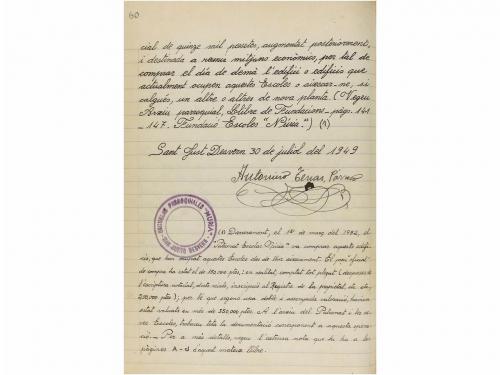 60
cial de quinze mil pessetes, augmentat posteriorment,
i destinada a reunir mitjans econòmics, per tal de
comprar el dia de demà l'edifici o edificis que
actualment ocupen aquestes Escoles o aixecar-ne, si
calgués, un altre o altres de nova planta. (Vegeu
Arxiu parroquial, Llibre de Fundacions - pàgs. 141
- 147. Fundació Escoles "Núria".) (1)
Sant Just Desvern 30 de juliol del 1949
Antonino Tenas, Pàrroco
ESCUELAS PARROQUIALES "NURIA"
SAN JUSTO DESVERN
(1) Darrerament, el 1er de març del 1952, el
"Patronat Escoles Núria" va comprar aquests edifi-
cis, que han estat aquestes Escoles des de llur aixecament. El preu oficial
de compra ha estat el de 150.000 ptes, i en realitat, comptat tot plegat (despeses de
l'escriptura notarial, drets reials, inscripció al Registre de la propietat, etc. etc,
200.000 ptes); per bé que segons una doble i assenyada valoració, havien
estat valuats en més de 350.000 ptes. A l'arxiu del Patronat i de
les Escoles, trobareu tota la documentació corresponent a aquesta opera-
ció. - Per a més detalls, vegeu l'extensa nota que hi ha a les
pàgines A - d d'aquest mateix llibre.